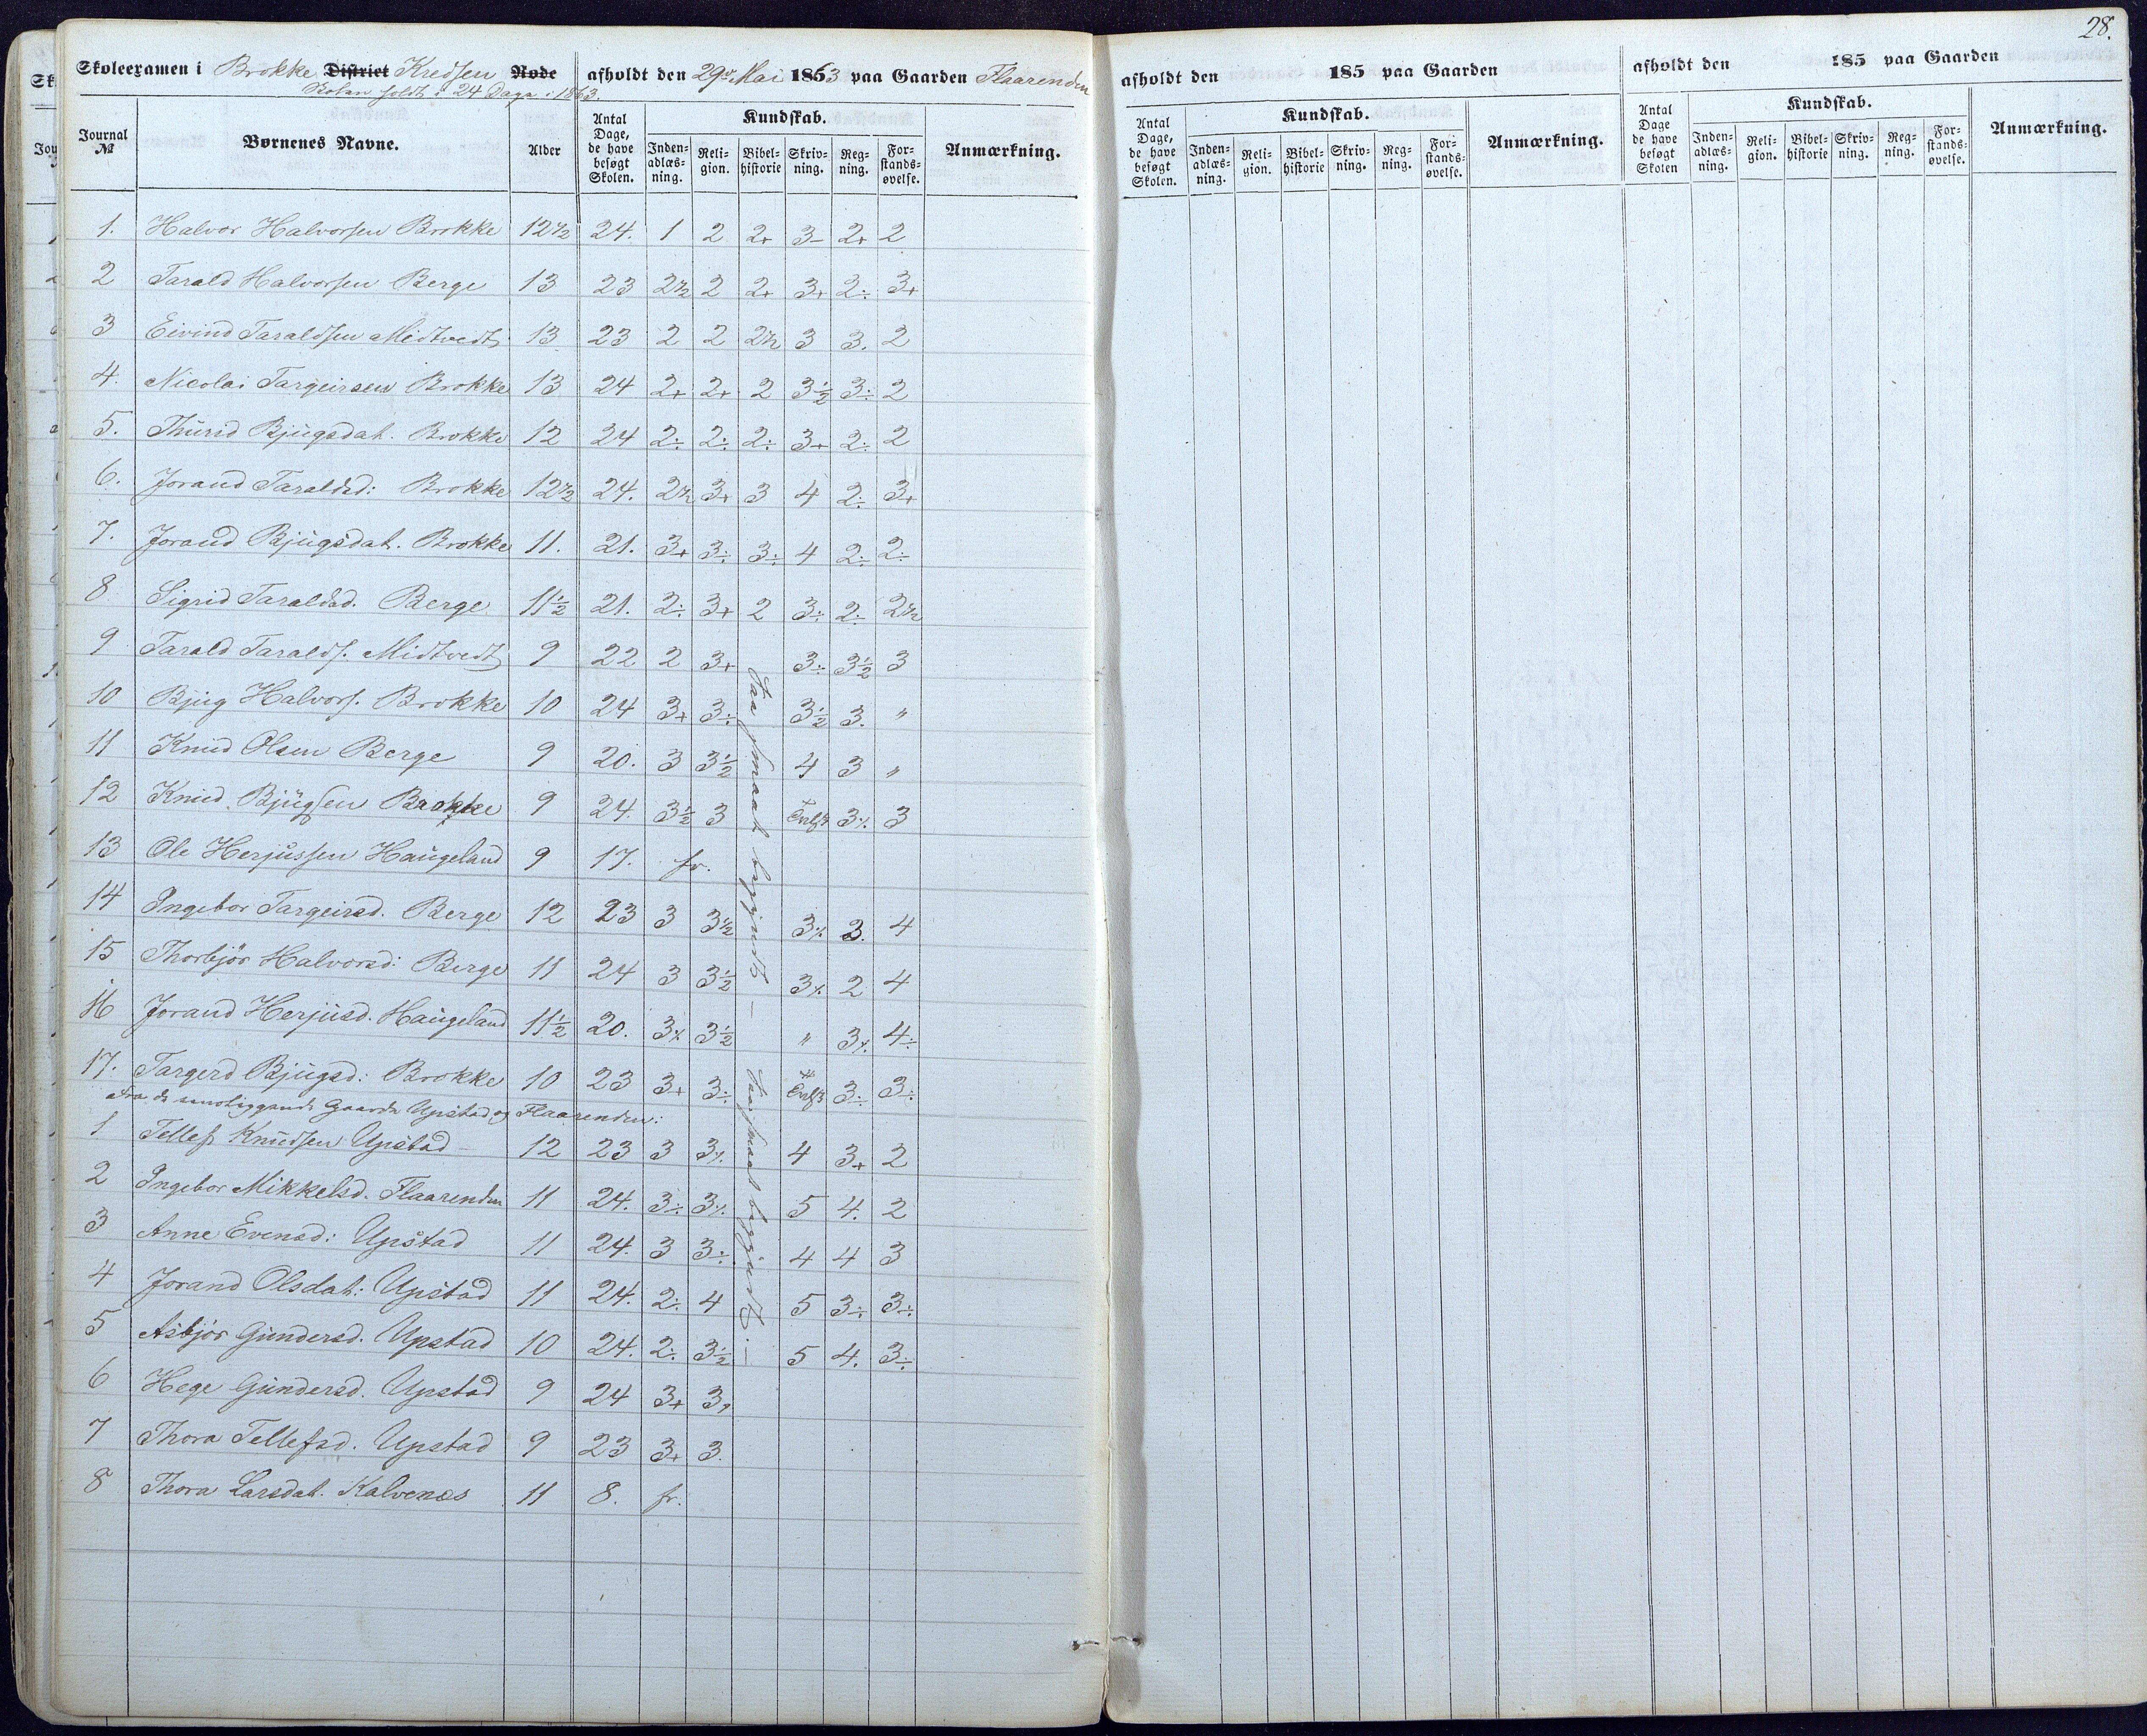 28.
Skoleexamen i Brokke District Kredsen Rode afholdt den 29de Mai 1863 paa Gaarden Flaarenden
Skolen holdt i 24 Dage i 1863.
Journal № Børnenes Navne. Alder Antal Dage, de have besøgt Skolen. Kundskab. Inden-adlæs-ning. Reli-gion. Bibel-historie Skriv-ning. Reg-ning. For-stands-øvelse. Anmærkning.
1. Halvor Halvorsen Brokke 12½ 24. 1 2 2+ 3- 2+ 2
2 Tarald Halvorsen Berge 13 23 2½ 2 2+ 3+ 2÷ 3+
3 Eivind Taraldsen Midtvedt 13 23 2 2 2½ 3 3. 2
4. Nicolai Targeirsen Brokke 13 24 2+ 2+ 2 3½ 3÷ 2
5. Thurid Bjugsdat. Brokke 12 24 2÷ 2÷ 2÷ 3+ 2÷ 2
6. Jorand Taraldsd: Brokke 12½ 24. 2½ 3+ 3 4 2÷ 3+
7. Jorand Bjugsdat. Brokke 11. 21. 3+ 3÷ 3÷ 4 2÷ 2÷
8 Sigrid Taraldsd. Berge 11½ 21. 2÷ 3+ 2 3÷ 2÷ 2½
9 Tarald Taralds. Midtvedt 9 22 2 3+ 3÷ 3½ 3
10 Bjug Halvors. Brokke 10 24 3+ 3÷ 3½ 3. "
11 Knud Olsen Berge 9 20. 3 3½ 4 3 "
12 Knud Bjugsen Brokke 9 24. 3½ 3 3÷ 3
13 Ole Herjussen Haugeland 9 17. fr.
14 Ingebor Targeirsd. Berge 12 23 3 3½ 3÷ 3. 4
15 Thorbjør Halvorsd: Berge 11 24 3 3½ 3÷ 2 4
16 Jorand Herjusd. Haugeland 11½ 20. 3÷ 3½ " 3÷ 4÷
17. Targerd Bjugsd: Brokke 10 23 3+ 3÷ 3÷ 3÷
Saa smaat begyndt –
Fra de Gaarde Upstad og Flaarenden:
1 Tellef Knudsen Upstad 12 23 3 3÷ 4 3+ 2
2 Ingebor Mikkelsd. Flaarenden 11 24. 3÷ 3÷ 5 4. 2
3 Anne Evensd: Upstad 11 24. 3 3÷ 4 4 3
4 Jorand Olsdat: Upstad 11 24. 2÷ 4 5 3÷ 3÷
5 Asbjør Gundersd. Upstad 10 24. 2÷ 3½ 5 4. 3÷
6 Hege Gundersd. Upstad 9 24 3+ 3,
7 Thora Tellefsd. Upstad 9 23 3+ 3.
8 Thora Larsdat. Kalvenæs 11 8. fr.
Saa smaat begyndt. –
afholdt den 185 paa Gaarden
Antal Dage, de have besøgt Skolen. Kundskab. Inden-adlæs-ning. Reli-gion. Bibel-historie Skriv-ning. Reg-ning. For-stands-øvelse. Anmærkning.
afholdt den 185 paa Gaarden
Antal Dage de have besøgt Skolen Kundskab. Inden-adlæs-ning. Reli-gion. Bibel-historie Skriv-ning. Reg-ning. For-stands-øvelse. Anmærkning.